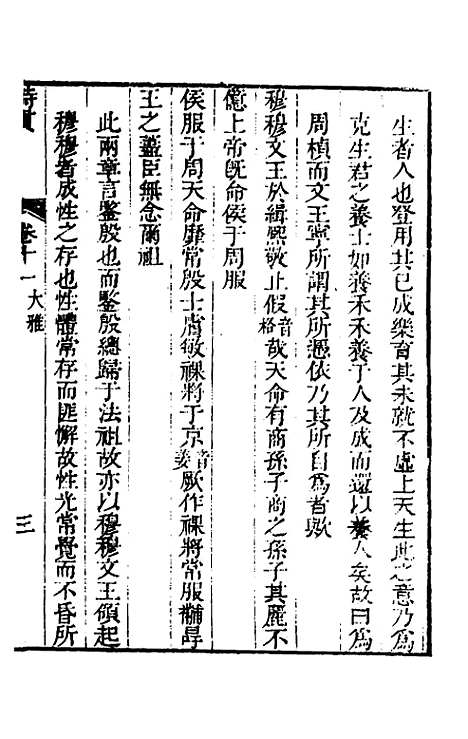 生者人也登用其已成樂育其未就不虛上天生此之意乃爲
克生君之養士如養禾禾養于人及成而還以養人矣故曰爲
周楨而文王寧所謂其所憑依乃其所自爲者歟
穆穆文王於緝熙敬止假音格哉天命有商孫子商之孫子其麗不
億上帝旣命侯于周服
侯服于周天命靡常殷士膚敏祼將于京音姜厥作祼將常服黼冔
王之藎臣無念爾祖
此兩章言鑒殷也而鑒殷總歸于法祖故亦以穆穆文王領起
穆穆者成性之存也性體常存而匪懈故性光常覺而不昏所
詩貫
卷十一 大雅
三